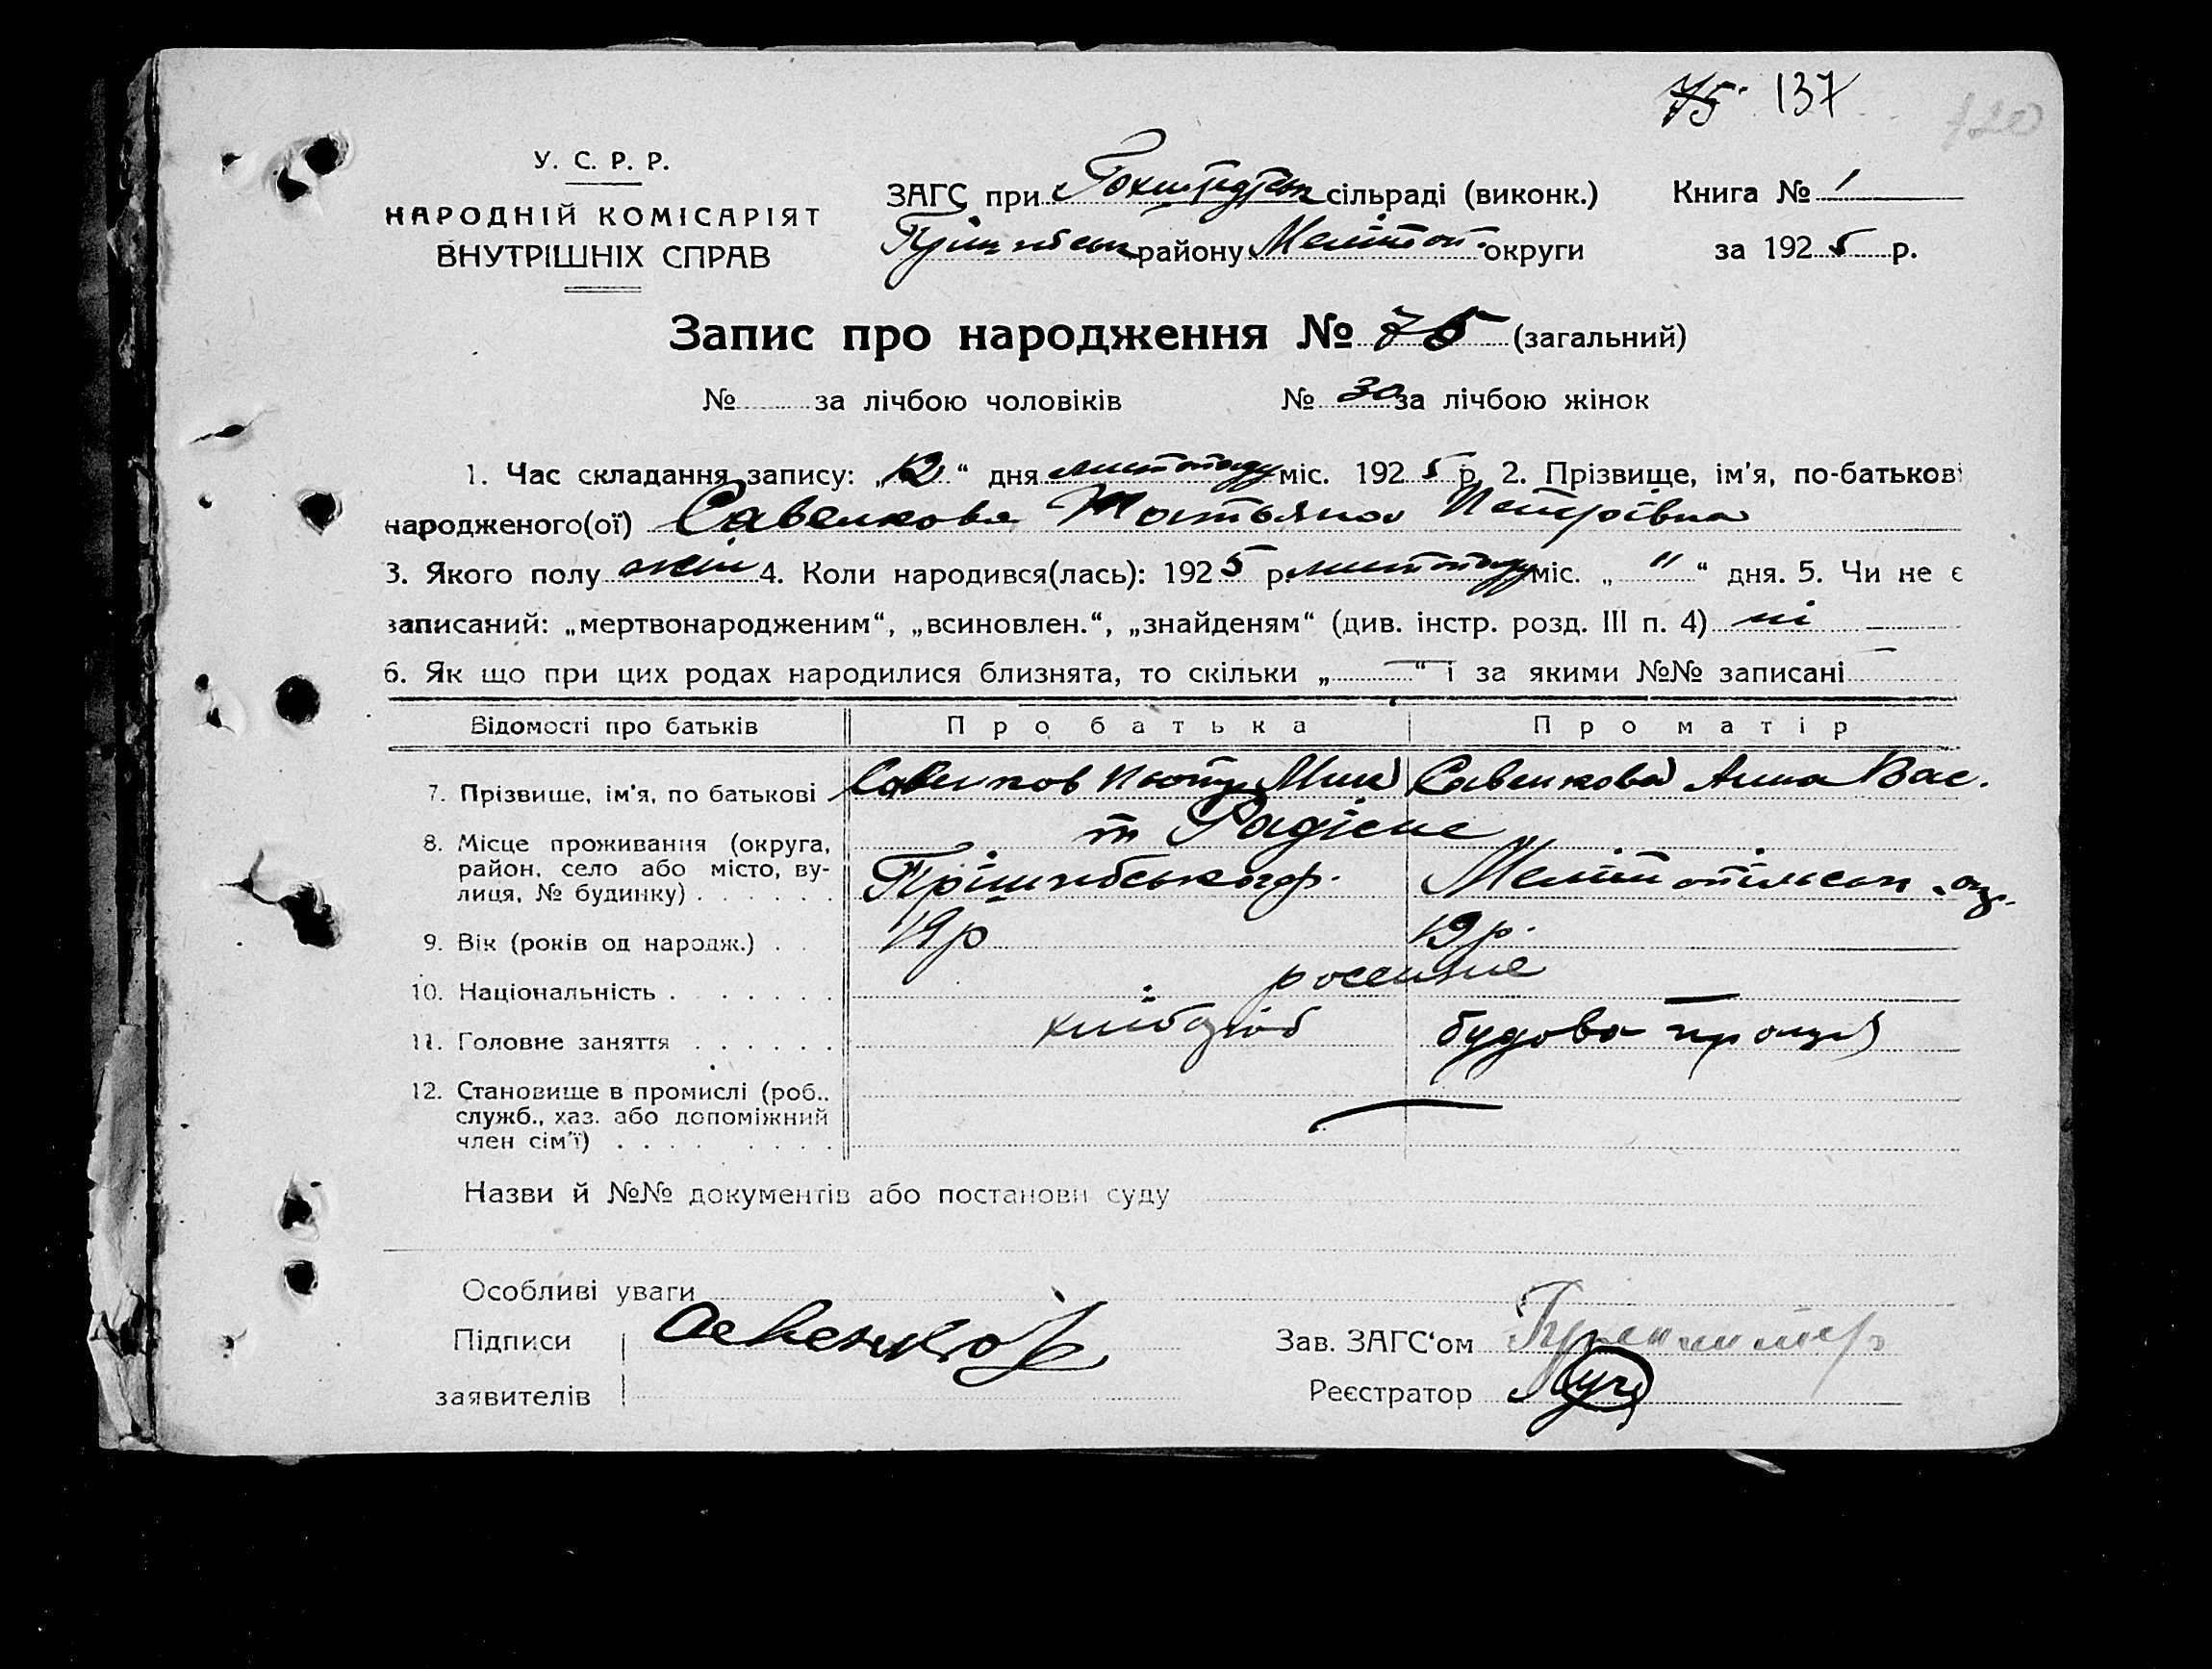 75 137
У. С. Р. Р.
НАРОДНІЙ КОМІСАРІЯТ
ВНУТРІШНІХ СПРАВ
ЗАГС при сільраді (виконк.) Книга № 1
району Меліт округи за 1925 р.
Запис про народження № 75 (загальний)
№ за лічбою чоловіків № 30 за лічбою жінок
1. Час складання запису: „12“ дня листопаду міс. 1925 р. 2. Прізвище, ім'я, по-батькові
народженого(ої) Савенкова Татьяна Петрівна
3. Якого полу жін 4. Коли народився(лась): 1925 р. листопаду міс. „11“ дня. 5. Чи не є
записаний: „мертвонародженим“, „всиновлен.“, „знайденям“ (див. інстр. розд. III п. 4) ні
6. Як що при цих родах народилися близнята, то скільки „—“ і за якими №№ записані
Відомості про батьків Про батька Про матір
7. Прізвище, ім'я, по батькові Савенков Петр Мик Савенкова Анна Вас.
8. Місце проживання (округа,
район, село або місто, вулиця, № будинку) Пришибського р. Мелітопільськ. окр.
9. Вік (років од народж.) 19 р 19 р.
10. Національність россияне
11. Головне заняття хлібороб
12. Становище в промислі (роб.,
служб., хаз. або допоміжний
член сім'ї)
Назви й №№ документів або постанови суду
Особливі уваги
Підписи Савенков Зав. ЗАГС'ом
заявителів Реєстратор